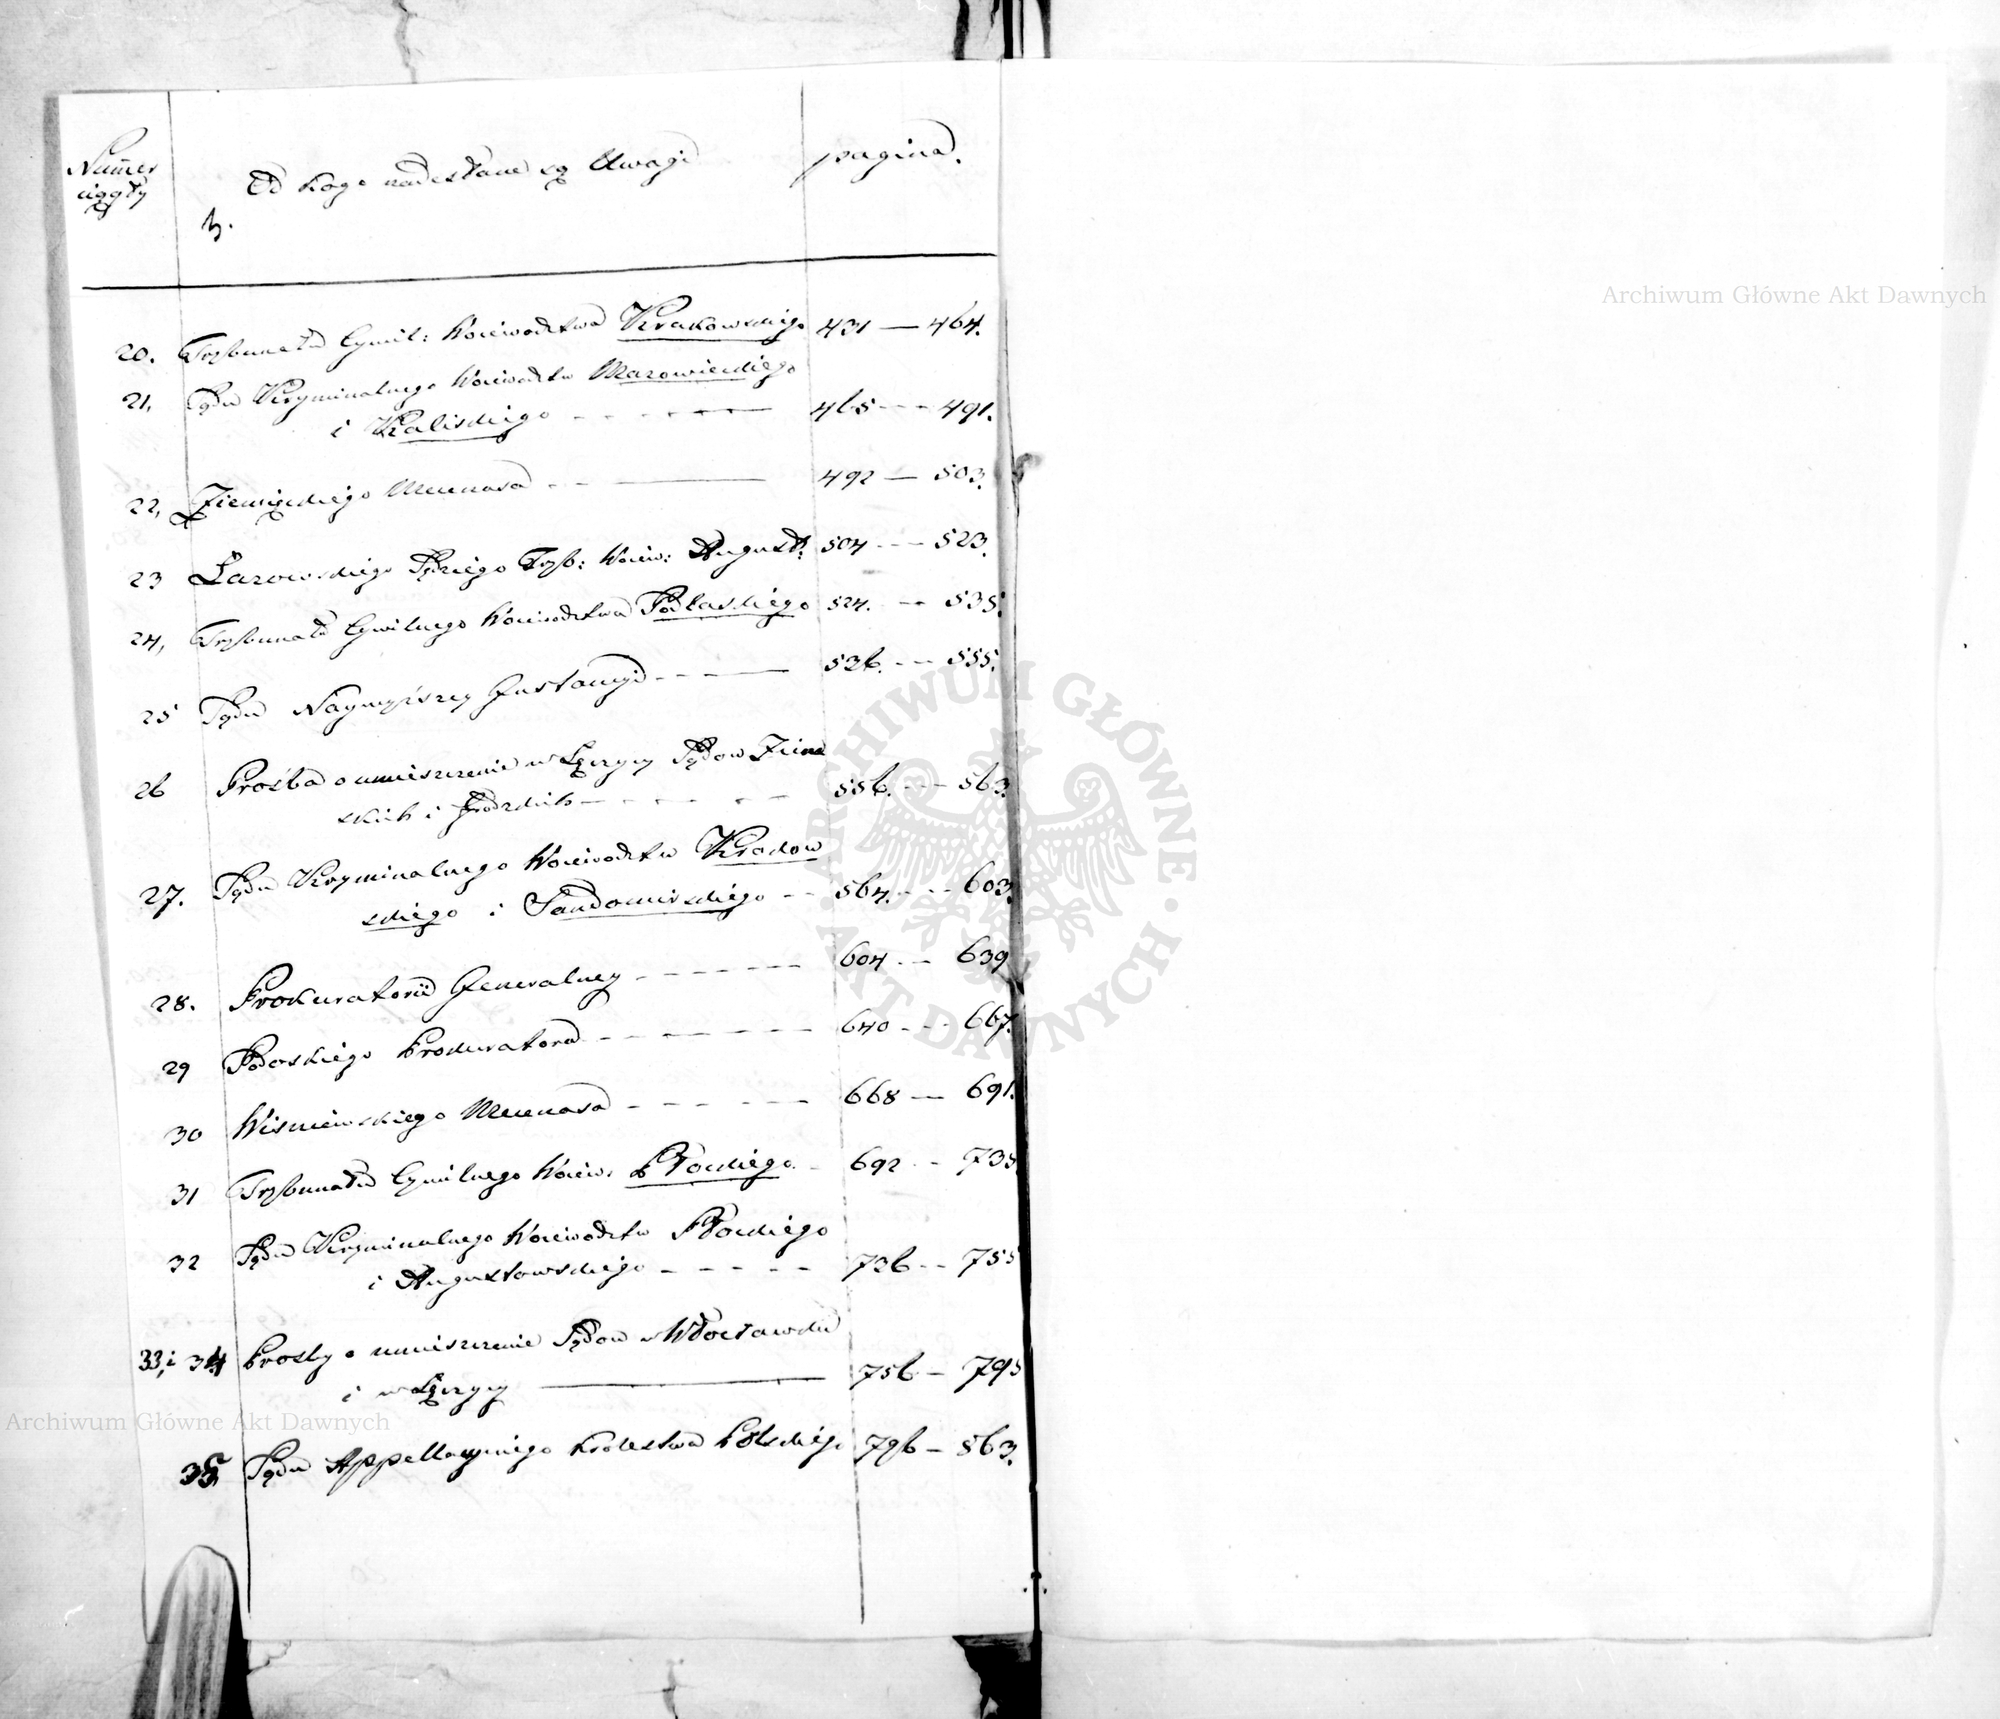 Numer
ciągły
Od kogo nadesłane są Uwagi
pagina.
3.
20. Trybunału Cywil: Woiewodztwa Krakowskiego 431 — 464.
21, Sądu Kryminalnego Woiewodztw Mazowieckiego
i Kaliskiego - - - - - 465 - - 491.
22, Ziemięckiego Mecenasa - - — 492 — 503.
23 Łazowskiego Sędziego Tryb: Woiew: August: 504 - - 523.
24, Trybunału Cywilnego Woiewodztwa Podlaskiego 524. - - 535.
25 Sądu Naywyższey Instancyi - - — 536. - - 555.
26 Prośba o umieszczenie w Łęczycy Sądow Ziem
skich i Grodzkich - - - - - 556. - - 563.
27. Sądu Kryminalnego Woiewodztw Krakow
skiego i Sandomirskiego - - 564. - - 603.
28. Prokuratorii Generalney - - - - - 604 - - 639
29 Podoskiego Prokuratora - - - - - 640 - - 667.
30 Wisniewskiego Mecenasa - - - - - 668 — 691.
31 Trybunału Cywilnego Woiew: Płockiego - 692 - - 735
32 Sądu Kryminalnego Woiewodztw Płockiego
i Augustowskiego - - - - - 736 - - 755
33, i 34 Prosby o umieszczenie Sądow w Włocławku
i w Łęczycy — 756 - 795
35 Sądu Appellacyinego Krolestwa Polskiego 796 - 863.
Archiwum Główne Akt Dawnych
ARCHIWUM GŁÓWNE · AKT DAWNYCH ·
Archiwum Główne Akt Dawnych